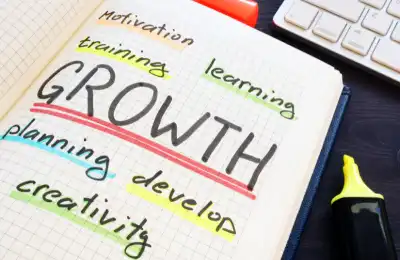 Motivation
training
learning
GROWTH
planning
develop
creativity